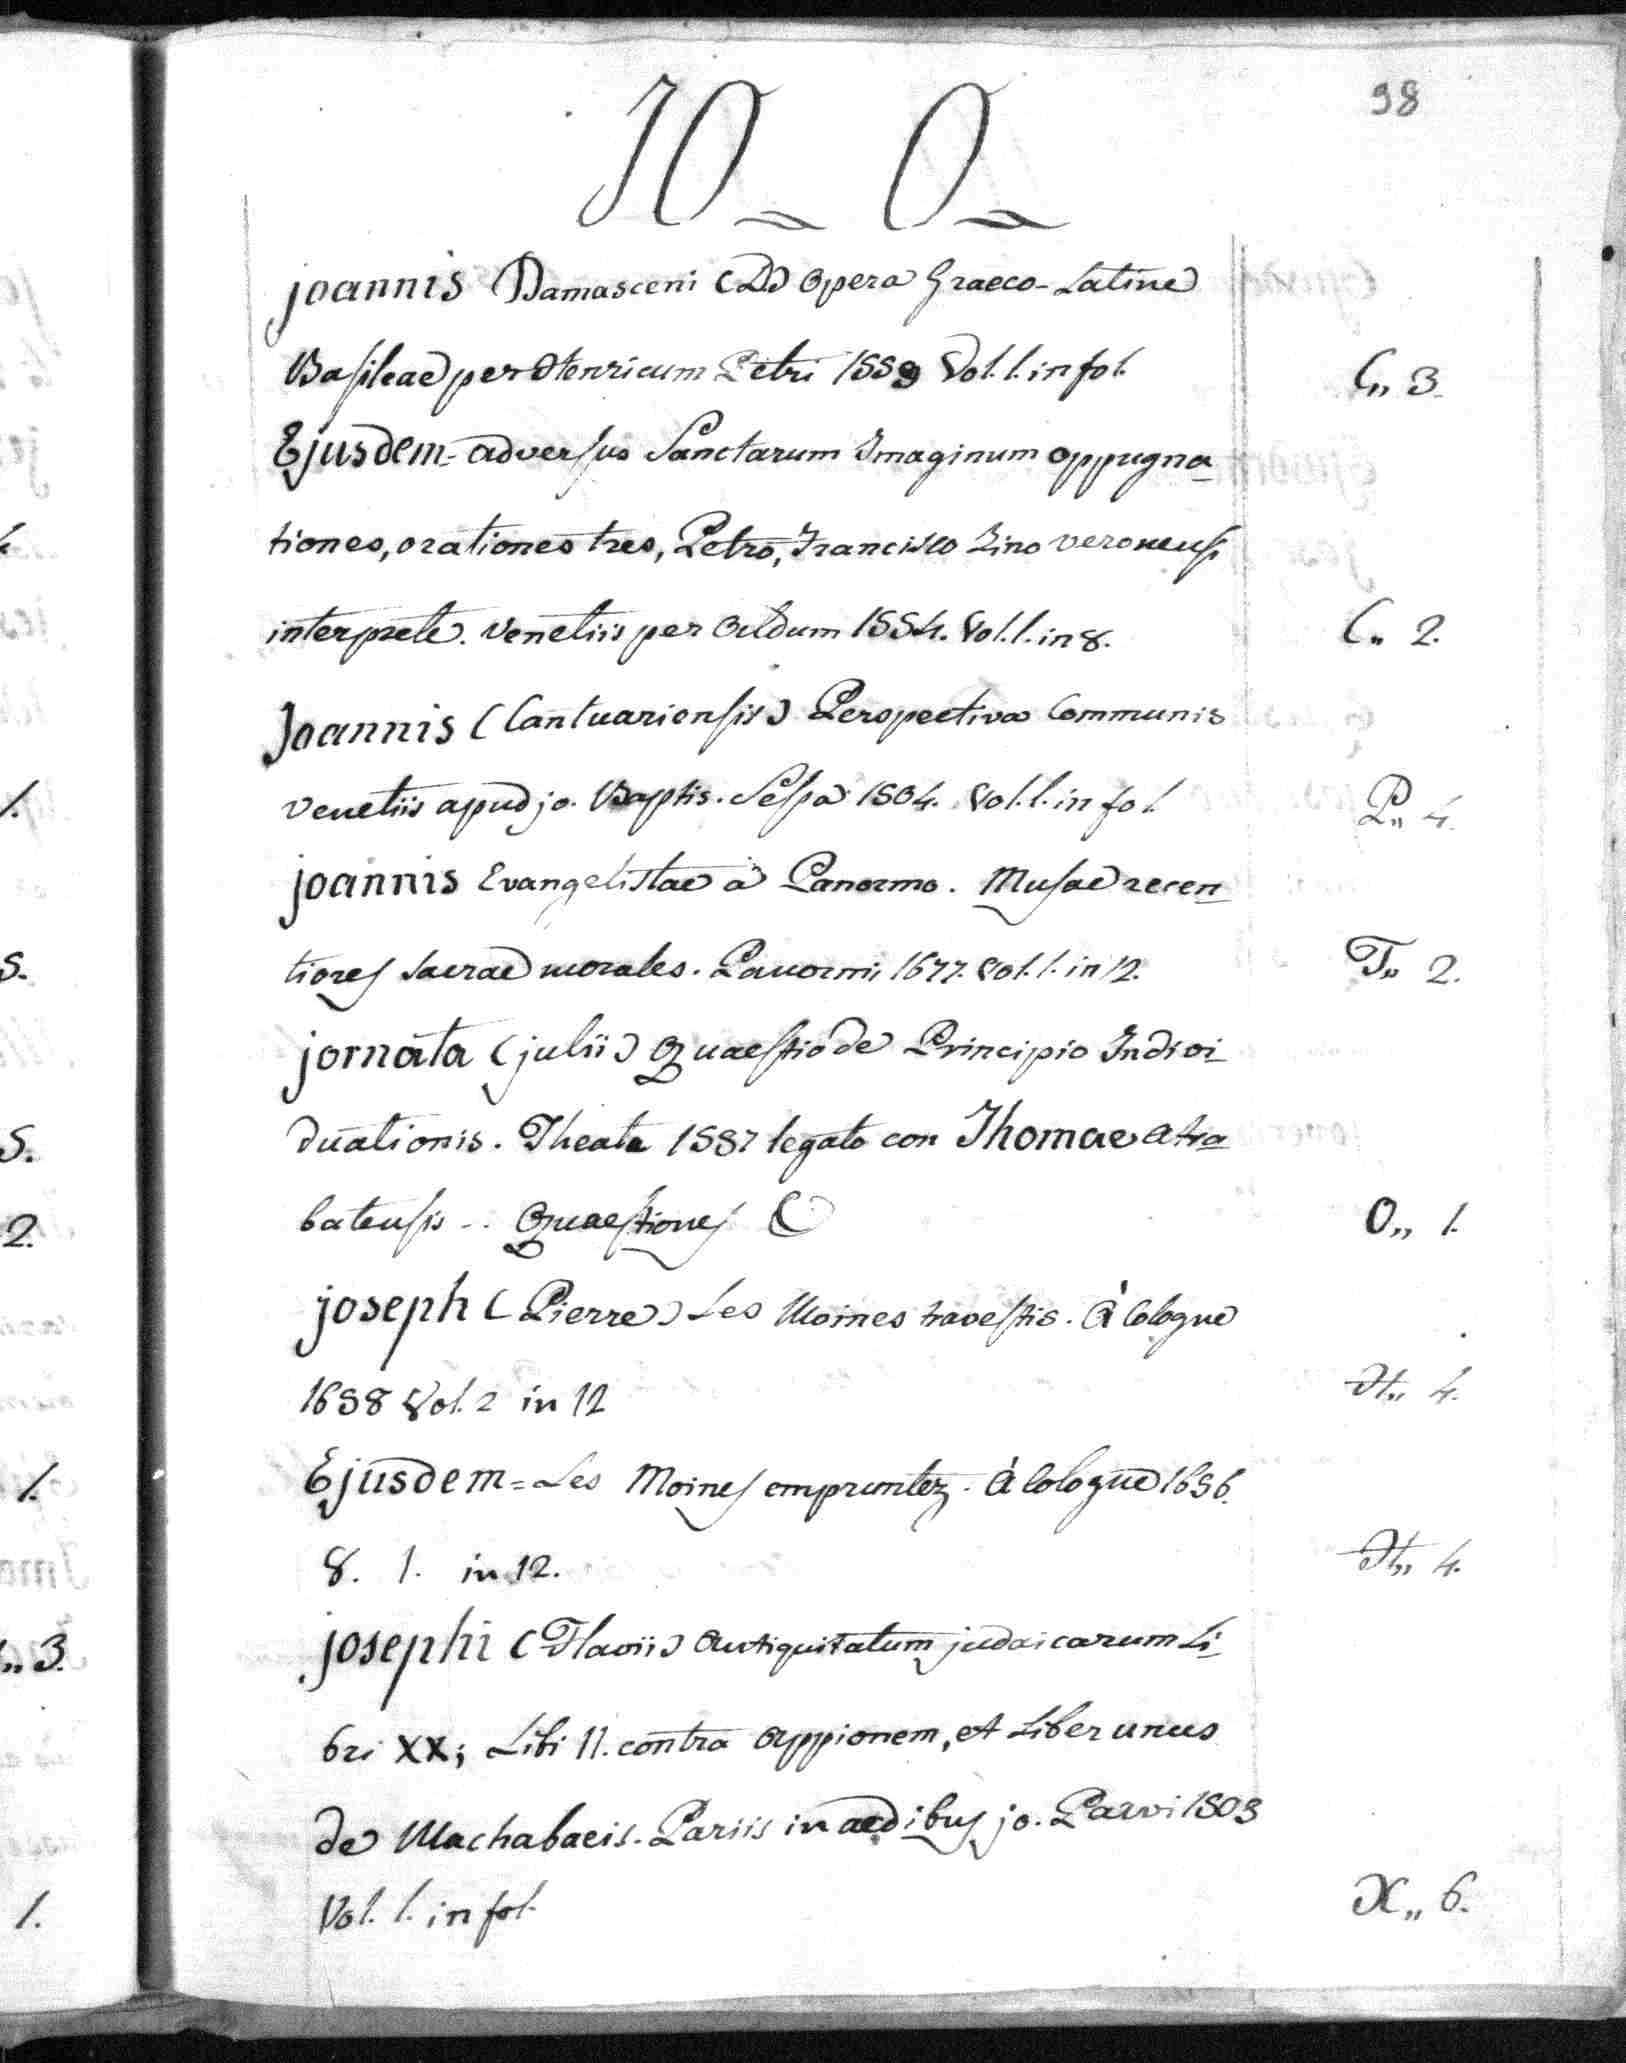 98
JO_ O_
joannis Damasceni (D.) Opera Graeco-Latine
Basileae per Henricum Petri 1559 Vol. 1. in fol. C,, 3.
Ejusdem = adversus Sanctarum Imaginum oppugna
tiones, orationes tres, Petro, Francisco Zino veronensi
interprete. Venetiis per Aldum 1554. Vol. 1. in 8. C,, 2.
Joannis (Cantuariensis) Perspectiva Communis
Venetiis apud jo. Baptis. Sessa 1504. Vol. 1. in fol. P,, 4.
joannis Evangelistae à Panormo. Musae recen
tiores sacrae morales. Panormi, 1677. Vol. 1. in 12. T,, 2.
jornata (julii) Quaestio de Principio Indivi
duationis. Theate 1587 legato con Thomae Atra
batensis .. Quaestiones O,, 1.
joseph (Pierre) Les Moines travestis. À Cologne
1698 Vol. 2 in 12 H,, 4.
Ejusdem = Les Moines empruntez. À Cologne 1696.
8. 1. in 12. H,, 4.
josephi (Flavii) Antiquitatum judaicarum Li
bri XX; Libi 11. contra Appionem, et Liber unus
de Machabaeis. Pariis in aedibus jo. Parvi 1503
Vol. 1. in fol. X,, 6.
1.
S.
S.
2.
1.
,, 3.
1.